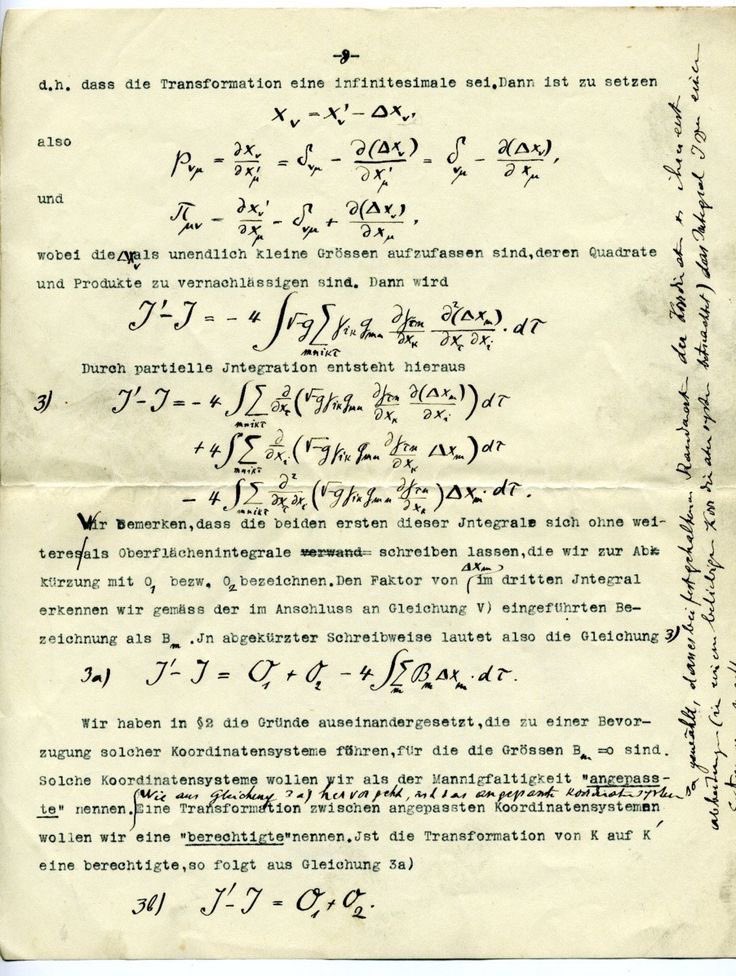 -8-
d.h. dass die Transformation eine infinitesimale sei.Dann ist zu setzen
x_ν = x_ν' - Δx_ν,
also
p_νμ = ∂x_ν/∂x_μ' = δ_νμ - ∂(Δx_ν)/∂x_μ' = δ_νμ - ∂(Δx_ν)/∂x_μ,
und
π_μν = ∂x_ν'/∂x_μ = δ_νμ + ∂(Δx_ν)/∂x_μ,
wobei die Δx_ν als unendlich kleine Grössen aufzufassen sind,deren Quadrate
und Produkte zu vernachlässigen sind. Dann wird
J'-J = - 4 ∫ √-g ∑_mnikτ γ_ik g_mn ∂γ_τn/∂x_κ ∂²(Δx_m)/∂x_τ ∂x_i · dτ
Durch partielle Jntegration entsteht hieraus
3) J'-J = - 4 ∫ ∑_mnikτ ∂/∂x_τ (√-g γ_ik g_mn ∂γ_τn/∂x_κ ∂(Δx_m)/∂x_i) dτ
+ 4 ∫ ∑_mnikτ ∂/∂x_i (√-g γ_ik g_mn ∂γ_τn/∂x_κ Δx_m) dτ
- 4 ∫ ∑_mnikτ ∂²/∂x_τ ∂x_i (√-g γ_ik g_mn ∂γ_τn/∂x_κ) Δx_m · dτ.
Wir bemerken,dass die beiden ersten dieser Jntegrale sich ohne wei-
teres als Oberflächenintegrale verwand= schreiben lassen,die wir zur Ab-
kürzung mit O_1 bezw. O_2 bezeichnen.Den Faktor von Δx_m im dritten Jntegral
erkennen wir gemäss der im Anschluss an Gleichung V) eingeführten Be-
zeichnung als B_m .Jn abgekürzter Schreibweise lautet also die Gleichung 3)
3a) J'-J = O_1 + O_2 - 4 ∫ ∑_m B_m Δx_m · dτ.
Wir haben in §2 die Gründe auseinandergesetzt,die zu einer Bevor-
zugung solcher Koordinatensysteme führen,für die die Grössen B_m =o sind.
Solche Koordinatensysteme wollen wir als der Mannigfaltigkeit "angepass-
te" nennen. Eine Transformation zwischen angepassten Koordinatensystemen
Wie aus Gleichung 3a) hervorgeht, ist das angepasste Koordinatensystem
wollen wir eine "berechtigte"nennen.Jst die Transformation von K auf K'
eine berechtigte,so folgt aus Gleichung 3a)
3b) J'-J = O_1 + O_2.
so gewählt, dass bei festgehaltenen Randwerten der Koordinaten
(in einem beliebigen Koordinatensystem betrachtet) das Integral J